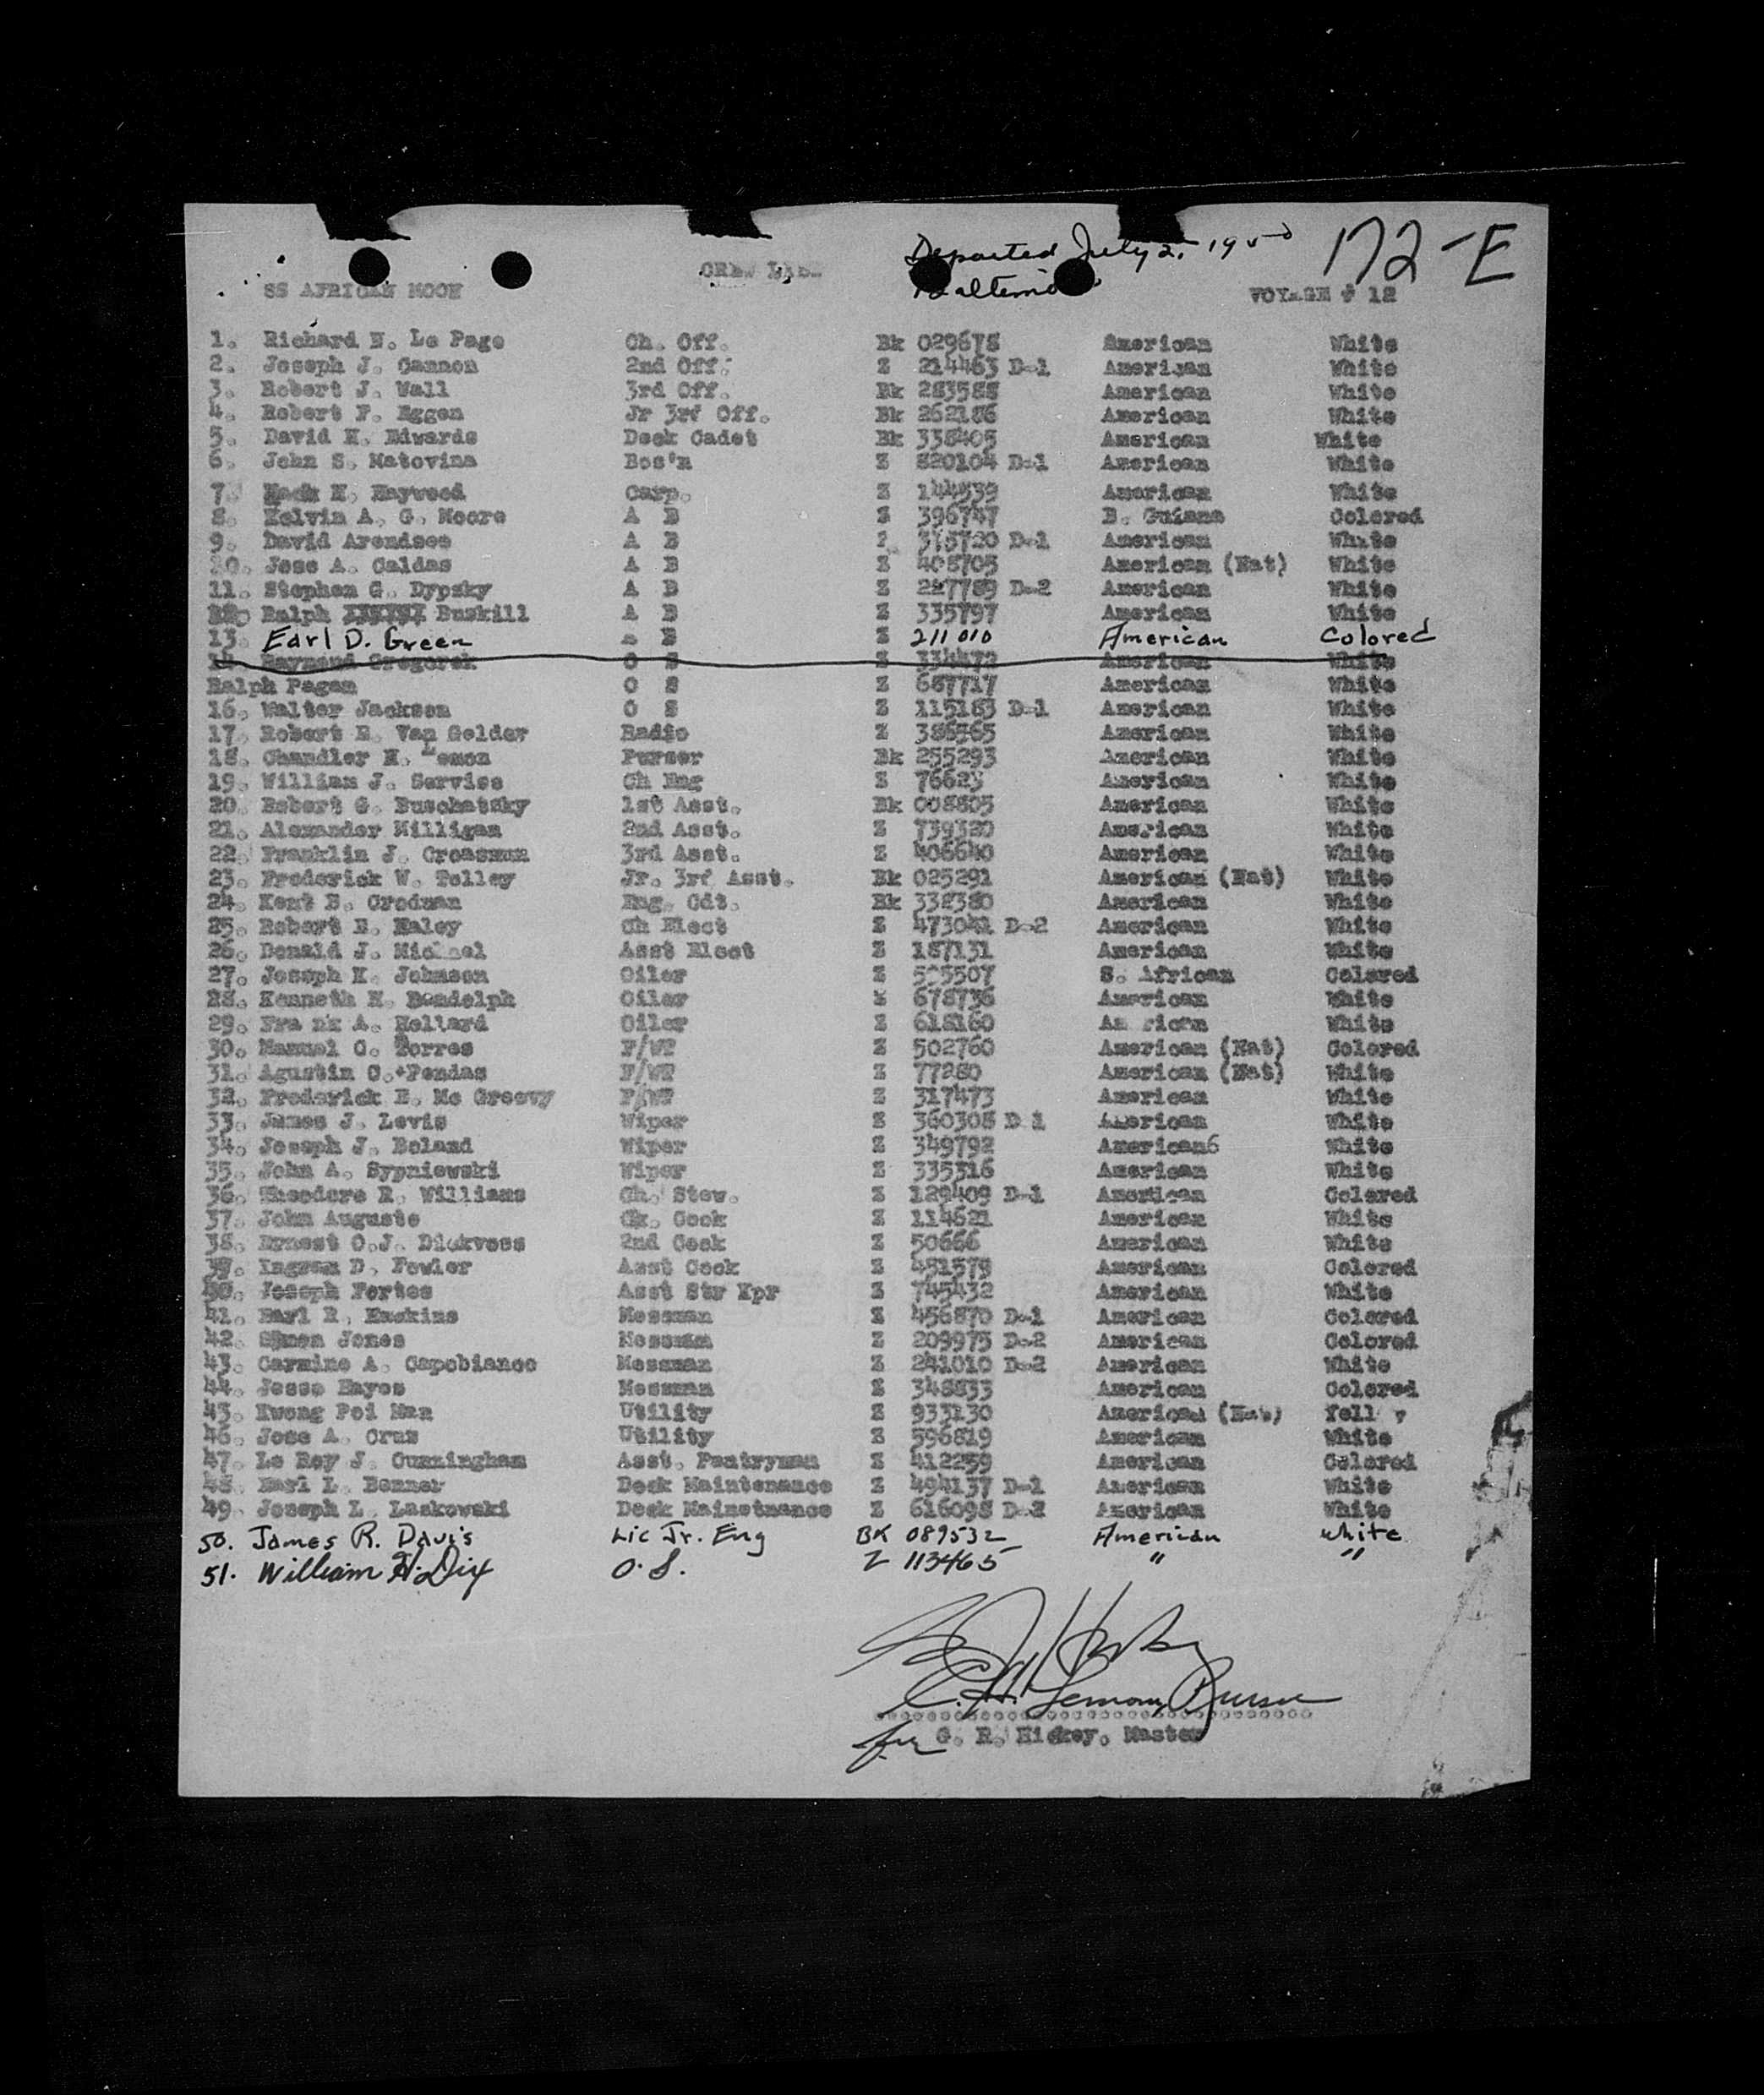 Departed July 2, 1950 172-E
CREW LIST
SS AFRICAN MOON Baltimo VOYAGE # 12
1. Richard N. Le Page Ch. Off. Bk 029678 American White
2. Joseph J. Cannon 2nd Off. Z 214463 D-1 American White
3. Robert J. Wall 3rd Off. Bk 283588 American White
4. Robert F. Eggen Jr 3rd Off. Bk 262186 American White
5. David H. Edwards Deck Cadet Bk 338405 American White
6. John S. Matovina Bos'n Z 820104 D-1 American White
7. Mack H. Haywood Carp. Z 144539 American White
8. Kelvin A. G. Moore A B Z 396747 B. Guiana Colored
9. David Arendsee A B Z 375720 D-1 American White
10. Jose A. Caldas A B Z 408705 American (Nat) White
11. Stephen G. Dypsky A B Z 227789 D-2 American White
12. Ralph Buskill A B Z 335797 American White
13. Earl D. Green A B Z 211010 American Colored
14. Raymond Gregorek O S Z 334472 American White
Ralph Pagan O S Z 687717 American White
16. Walter Jackson O S Z 115183 D-1 American White
17. Robert E. Van Gelder Radio Z 386565 American White
18. Chandler H. Lemon Purser Bk 255293 American White
19. William J. Serviss Ch Eng Z 76623 American White
20. Robert G. Buschatzky 1st Asst. Bk 008805 American White
21. Alexander Milligan 2nd Asst. Z 739320 American White
22. Franklin J. Croasmun 3rd Asst. Z 406640 American White
23. Frederick W. Tolley Jr. 3rd Asst. Bk 025291 American (Nat) White
24. Kent B. Crodman Eng. Cdt. Bk 338380 American White
25. Robert E. Haley Ch Elect Z 473041 D-2 American White
26. Donald J. Michael Asst Elect Z 187131 American White
27. Joseph H. Johnson Oiler Z 505507 S. African Colored
28. Kenneth H. Bondolph Oiler Z 678736 American White
29. Fra nk A. Hollard Oiler Z 618160 American White
30. Manuel G. Torres F/WT Z 502760 American (Nat) Colored
31. Agustin C. Pendas F/WT Z 77280 American (Nat) White
32. Frederick E. Mc Greevy F/WT Z 317473 American White
33. James J. Levis Wiper Z 360308 D 1 American White
34. Joseph J. Boland Wiper Z 349792 American6 White
35. John A. Sypniewski Wiper Z 335316 American White
36. Theodore R. Williams Ch. Stew. Z 129409 D-1 American Colored
37. John Auguste Ck. Cook Z 114621 American White
38. Ernest O.J. Dickvoss 2nd Cook Z 50666 American White
39. Ingram D. Fowler Asst Cook Z 451579 American Colored
40. Joseph Fortes Asst Str Kpr Z 745432 American White
41. Earl R. Haskins Messman Z 456870 D-1 American Colored
42. Simon Jones Messman Z 209975 D-2 American Colored
43. Carmine A. Capobianco Messman Z 241010 D-2 American White
44. Jesse Hayes Messman Z 348833 American Colored
45. Kwong Poi Man Utility Z 933130 American (Nat) Yell
46. Jose A. Cruz Utility Z 596819 American White
47. Le Roy J. Cunningham Asst. Pantryman Z 412259 American Colored
48. Earl L. Bonner Deck Maintenance Z 494137 D-1 American White
49. Joseph L. Laskowski Deck Mainetnance Z 616098 D-2 American White
50. James R. Davis Lic Jr. Eng BK 089532 American White
51. William H. Dix O.S. Z 113465 " "
C.H. Lemon, Purser
for G. R. Hickey, Master